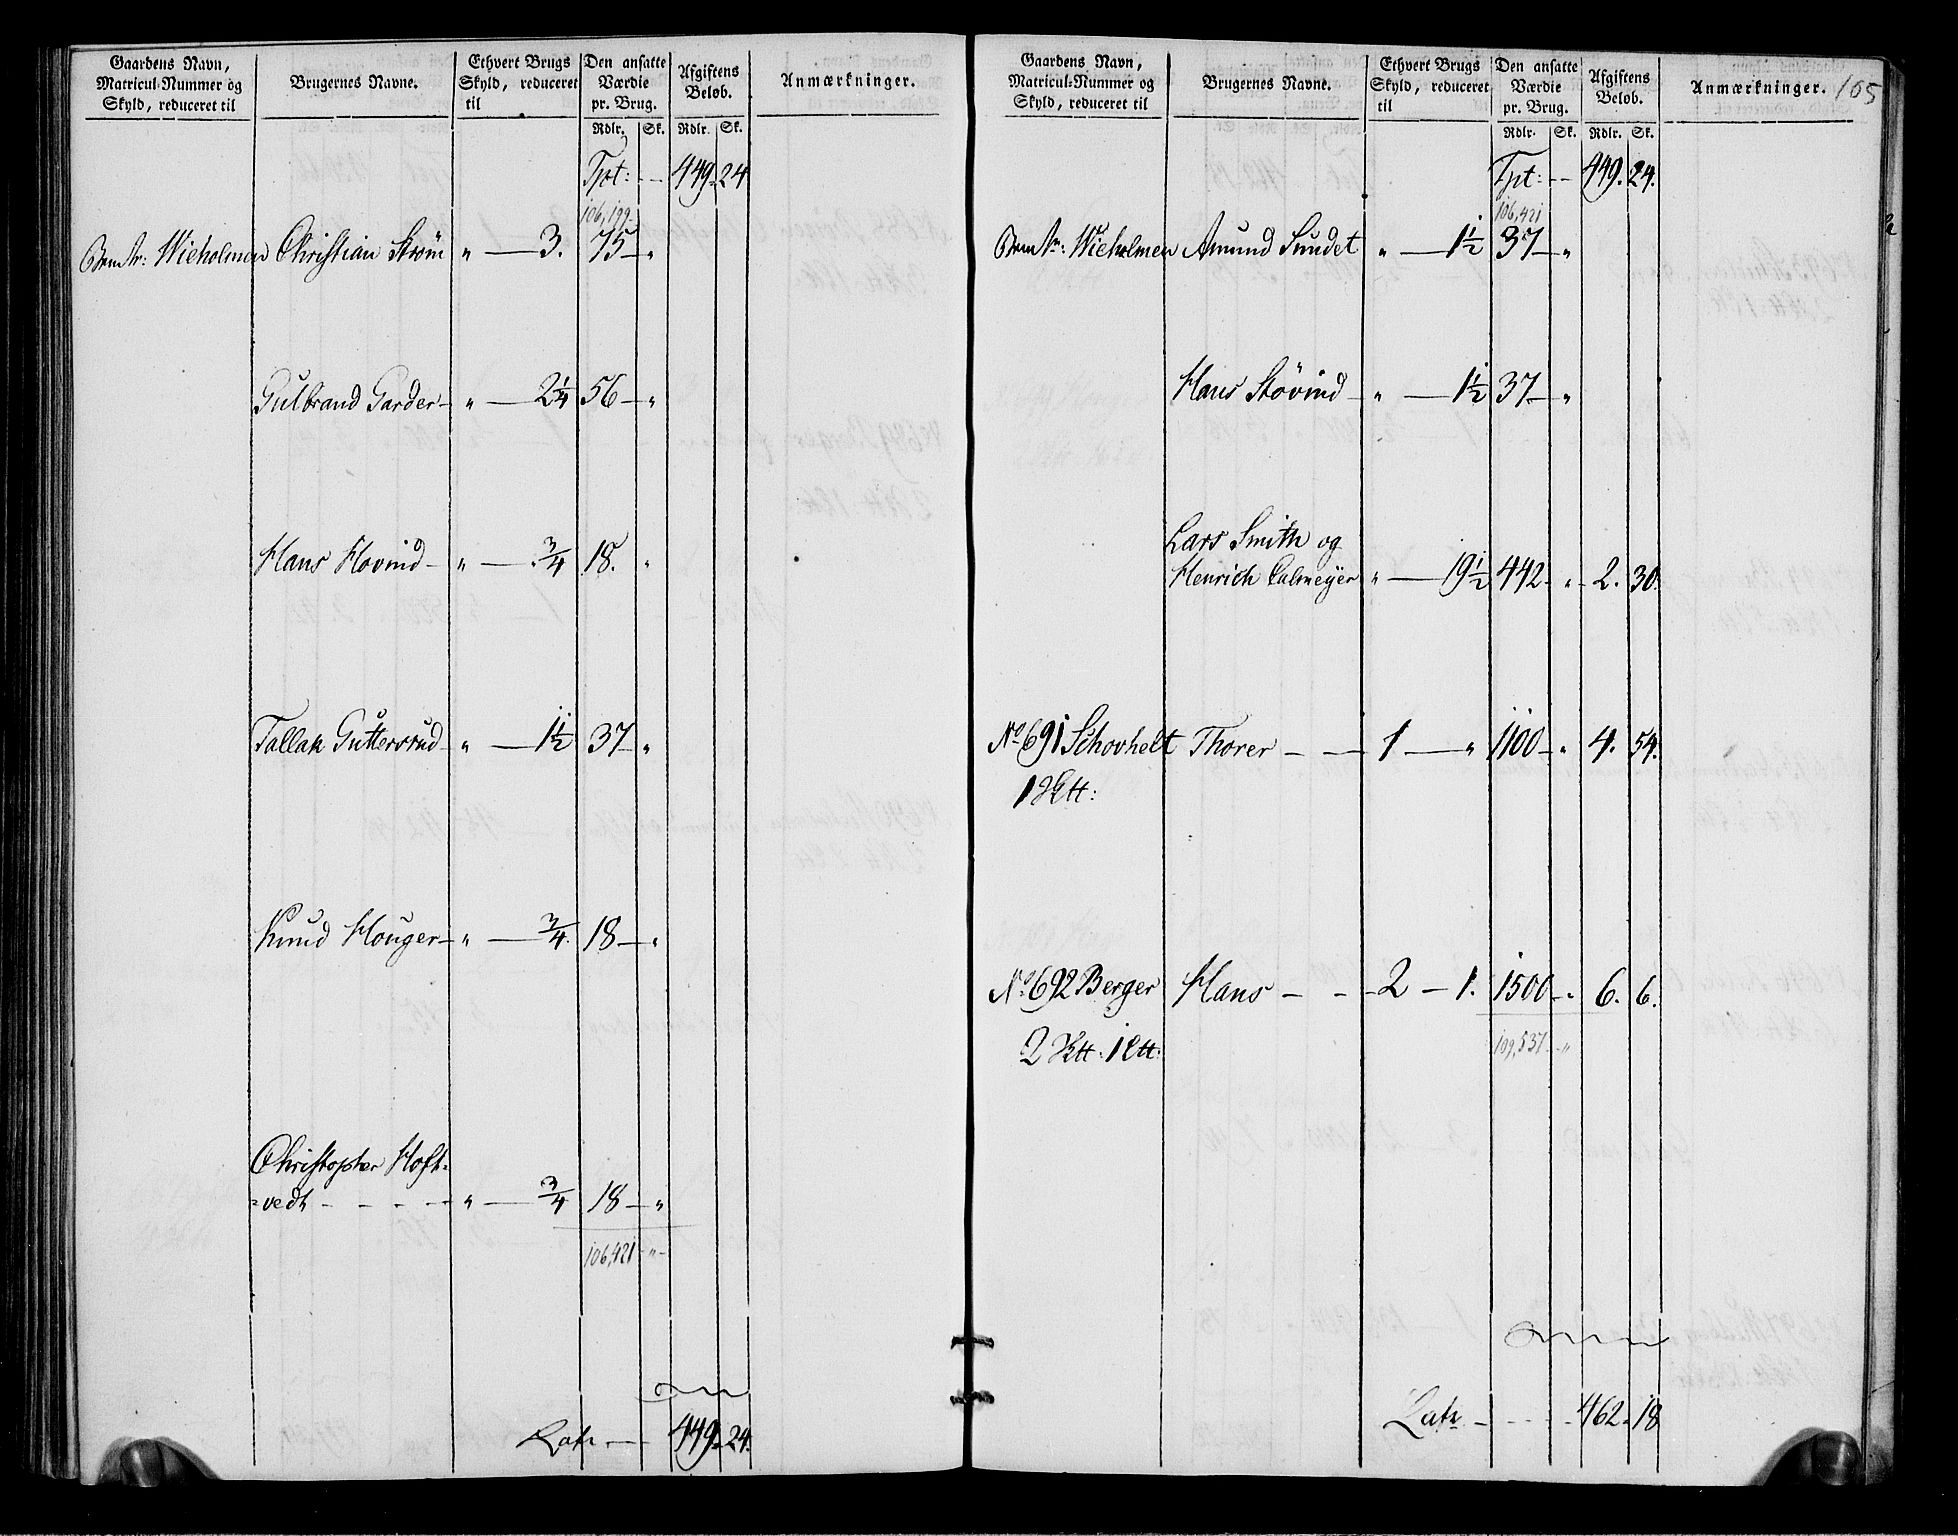 Gaardens Navn, Matricul-Nummer og Skyld, reduceret til
Brugernes Navne.
Ethvert Brugs Skyld, reduceret til
Den ansatte Værdie pr. Brug.
Afgiftens Beløb.
Anmærkninger.
Rdlr. Sk. Rdlr. Sk.
Tpt: — 449. 24
106,199
Wieholmen Christian Strøm „ — 3. 75 — „
Gulbrand Garder — „ — 2 1/4 56 — „
Hans Hovind — „ — 3/4 18. „
Tallak Guttersrud — „ — 1 1/2 37 „
Knud Houger — „ — 3/4. 18 — „
Christopher Hoft=
=vedt - - - - „ — 3/4 18 — „
106,421 - „ -
Latr — 449. 24.
Gaardens Navn, Matricul-Nummer og Skyld, reduceret til
Brugernes Navne.
Ethvert Brugs Skyld, reduceret til
Den ansatte Værdie pr. Brug.
Afgiftens Beløb.
Anmærkninger.
105
Rdlr. Sk. Rdlr. Sk.
Tpt: — 449. 24.
106,421
Wieholmen Amund Sundet „ — 1 1/2 37 — „
Hans Støvind — „ — 1 1/2 37 — „
Lars Smith og
Henrich Calmeÿer „ — 19 1/2 442 - „ - 2. 30.
No 691 Schovhelt Thorer — — 1 — „ 1100 — „ 4. 54.
1 Htt:
No 692 Berger Hans — - - 2 — 1. 1500 - „ 6. 6.
2 Htt: 1 Ltt:
109,537 - „
Latr - - - - 462. 18